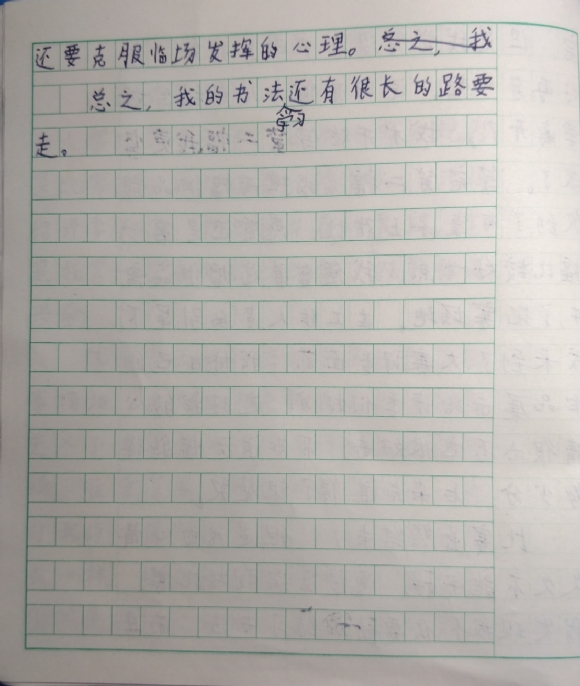 还要克服临场发挥的心理。总之，我
总之，我的书法还有很长的路要
学习
走。